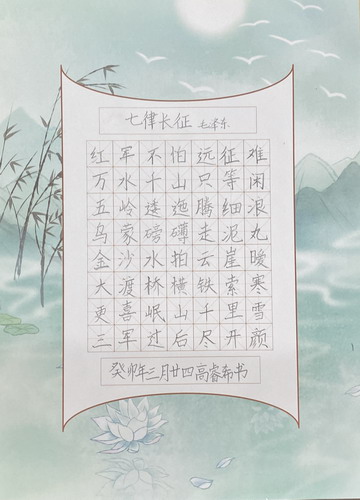 七律长征 毛泽东
红军不怕远征难
万水千山只等闲
五岭逶迤腾细浪
乌蒙磅礴走泥丸
金沙水拍云崖暖
大渡桥横铁索寒
更喜岷山千里雪
三军过后尽开颜
癸卯年三月廿四高睿希书